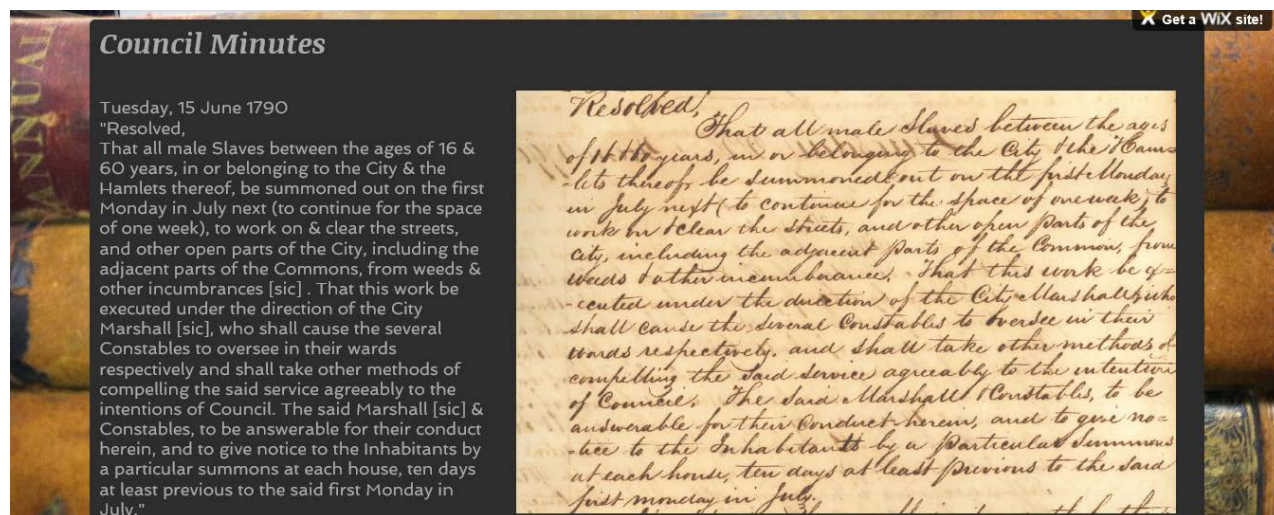 Get a WiX site!
Council Minutes
Tuesday, 15 June 1790
"Resolved,
That all male Slaves between the ages of 16 &
60 years, in or belonging to the City & the
Hamlets thereof, be summoned out on the first
Monday in July next (to continue for the space
of one week), to work on & clear the streets,
and other open parts of the City, including the
adjacent parts of the Commons, from weeds &
other incumbrances [sic] . That this work be
executed under the direction of the City
Marshall [sic], who shall cause the several
Constables to oversee in their wards
respectively and shall take other methods of
compelling the said service agreeably to the
intentions of Council. The said Marshall [sic] &
Constables, to be answerable for their conduct
herein, and to give notice to the Inhabitants by
a particular summons at each house, ten days
at least previous to the said first Monday in
July."
Resolved,
That all male Slaves between the ages
of 16 & 60 years, in or belonging to the City & the Ham=
=lets thereof, be summoned out on the first Monday
in July next (to continue for the space of one week) to
work on & clear the streets, and other open parts of the
City, including the adjacent parts of the Common, from
weeds & other incumbrance. That this work be ex=
=ecuted under the direction of the City Marshall, who
shall cause the several Constables to oversee in their
wards respectively, and shall take other methods of
compelling the said service agreeably to the intention
of Council. The said Marshall & Constables, to be
answerable for their Conduct herein, and to give no=
=tice to the Inhabitants by a Particular Summons
at each house, ten days at least previous to the said
first monday in July.